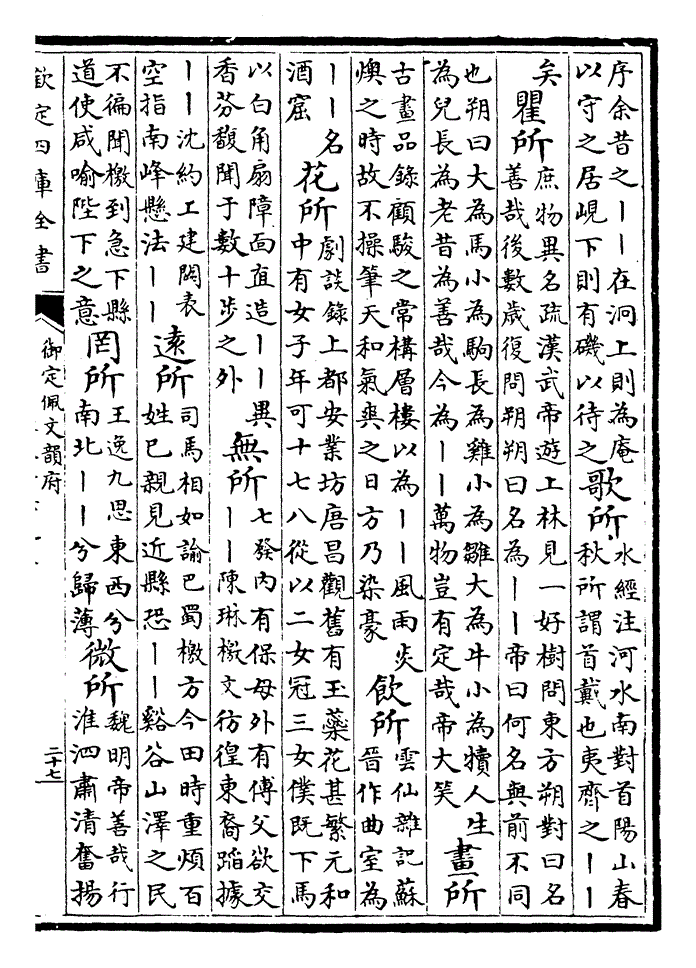 序余昔之丨丨在泂上則為庵
以守之居峴下則有磯以待之
歌所
水經注河水南對首陽山春
秋所謂首戴也夷齊之丨丨
矣
瞿所
庶物異名疏漢武帝遊上林見一好樹問東方朔對曰名
善哉後數歲復問朔朔曰名為丨丨帝曰何名與前不同
也朔曰大為馬小為駒長為雞小為雛大為牛小為犢人生
為兒長為老昔為善哉今為丨丨萬物豈有定哉帝大笑
畫所
古畫品錄顧駿之常構層樓以為丨丨風雨炎
燠之時故不操筆天和氣爽之日方乃染豪
飲所
雲仙雜記蘇
晉作曲室為
丨丨名
酒窟
花所
劇談錄上都安業坊唐昌觀舊有玉蘂花甚繁元和
中有女子年可十七八從以二女冠三女僕既下馬
以白角扇障面直造丨丨異
香芬馥聞于數十步之外
無所
七發內有保母外有傅父欲交
丨丨陳琳檄文彷徨東裔蹈據
丨丨沈約工建闕表
空指南峰懸法丨丨
遠所
司馬相如諭巴蜀檄方今田時重煩百
姓已親見近縣恐丨丨谿谷山澤之民
不徧聞檄到急下縣
道使咸喻陛下之意
罔所
王逸九思東西兮
南北丨丨兮歸薄
微所
魏明帝善哉行
淮泗肅清奮揚
欽定四庫全書
御定佩文韻府
二十七